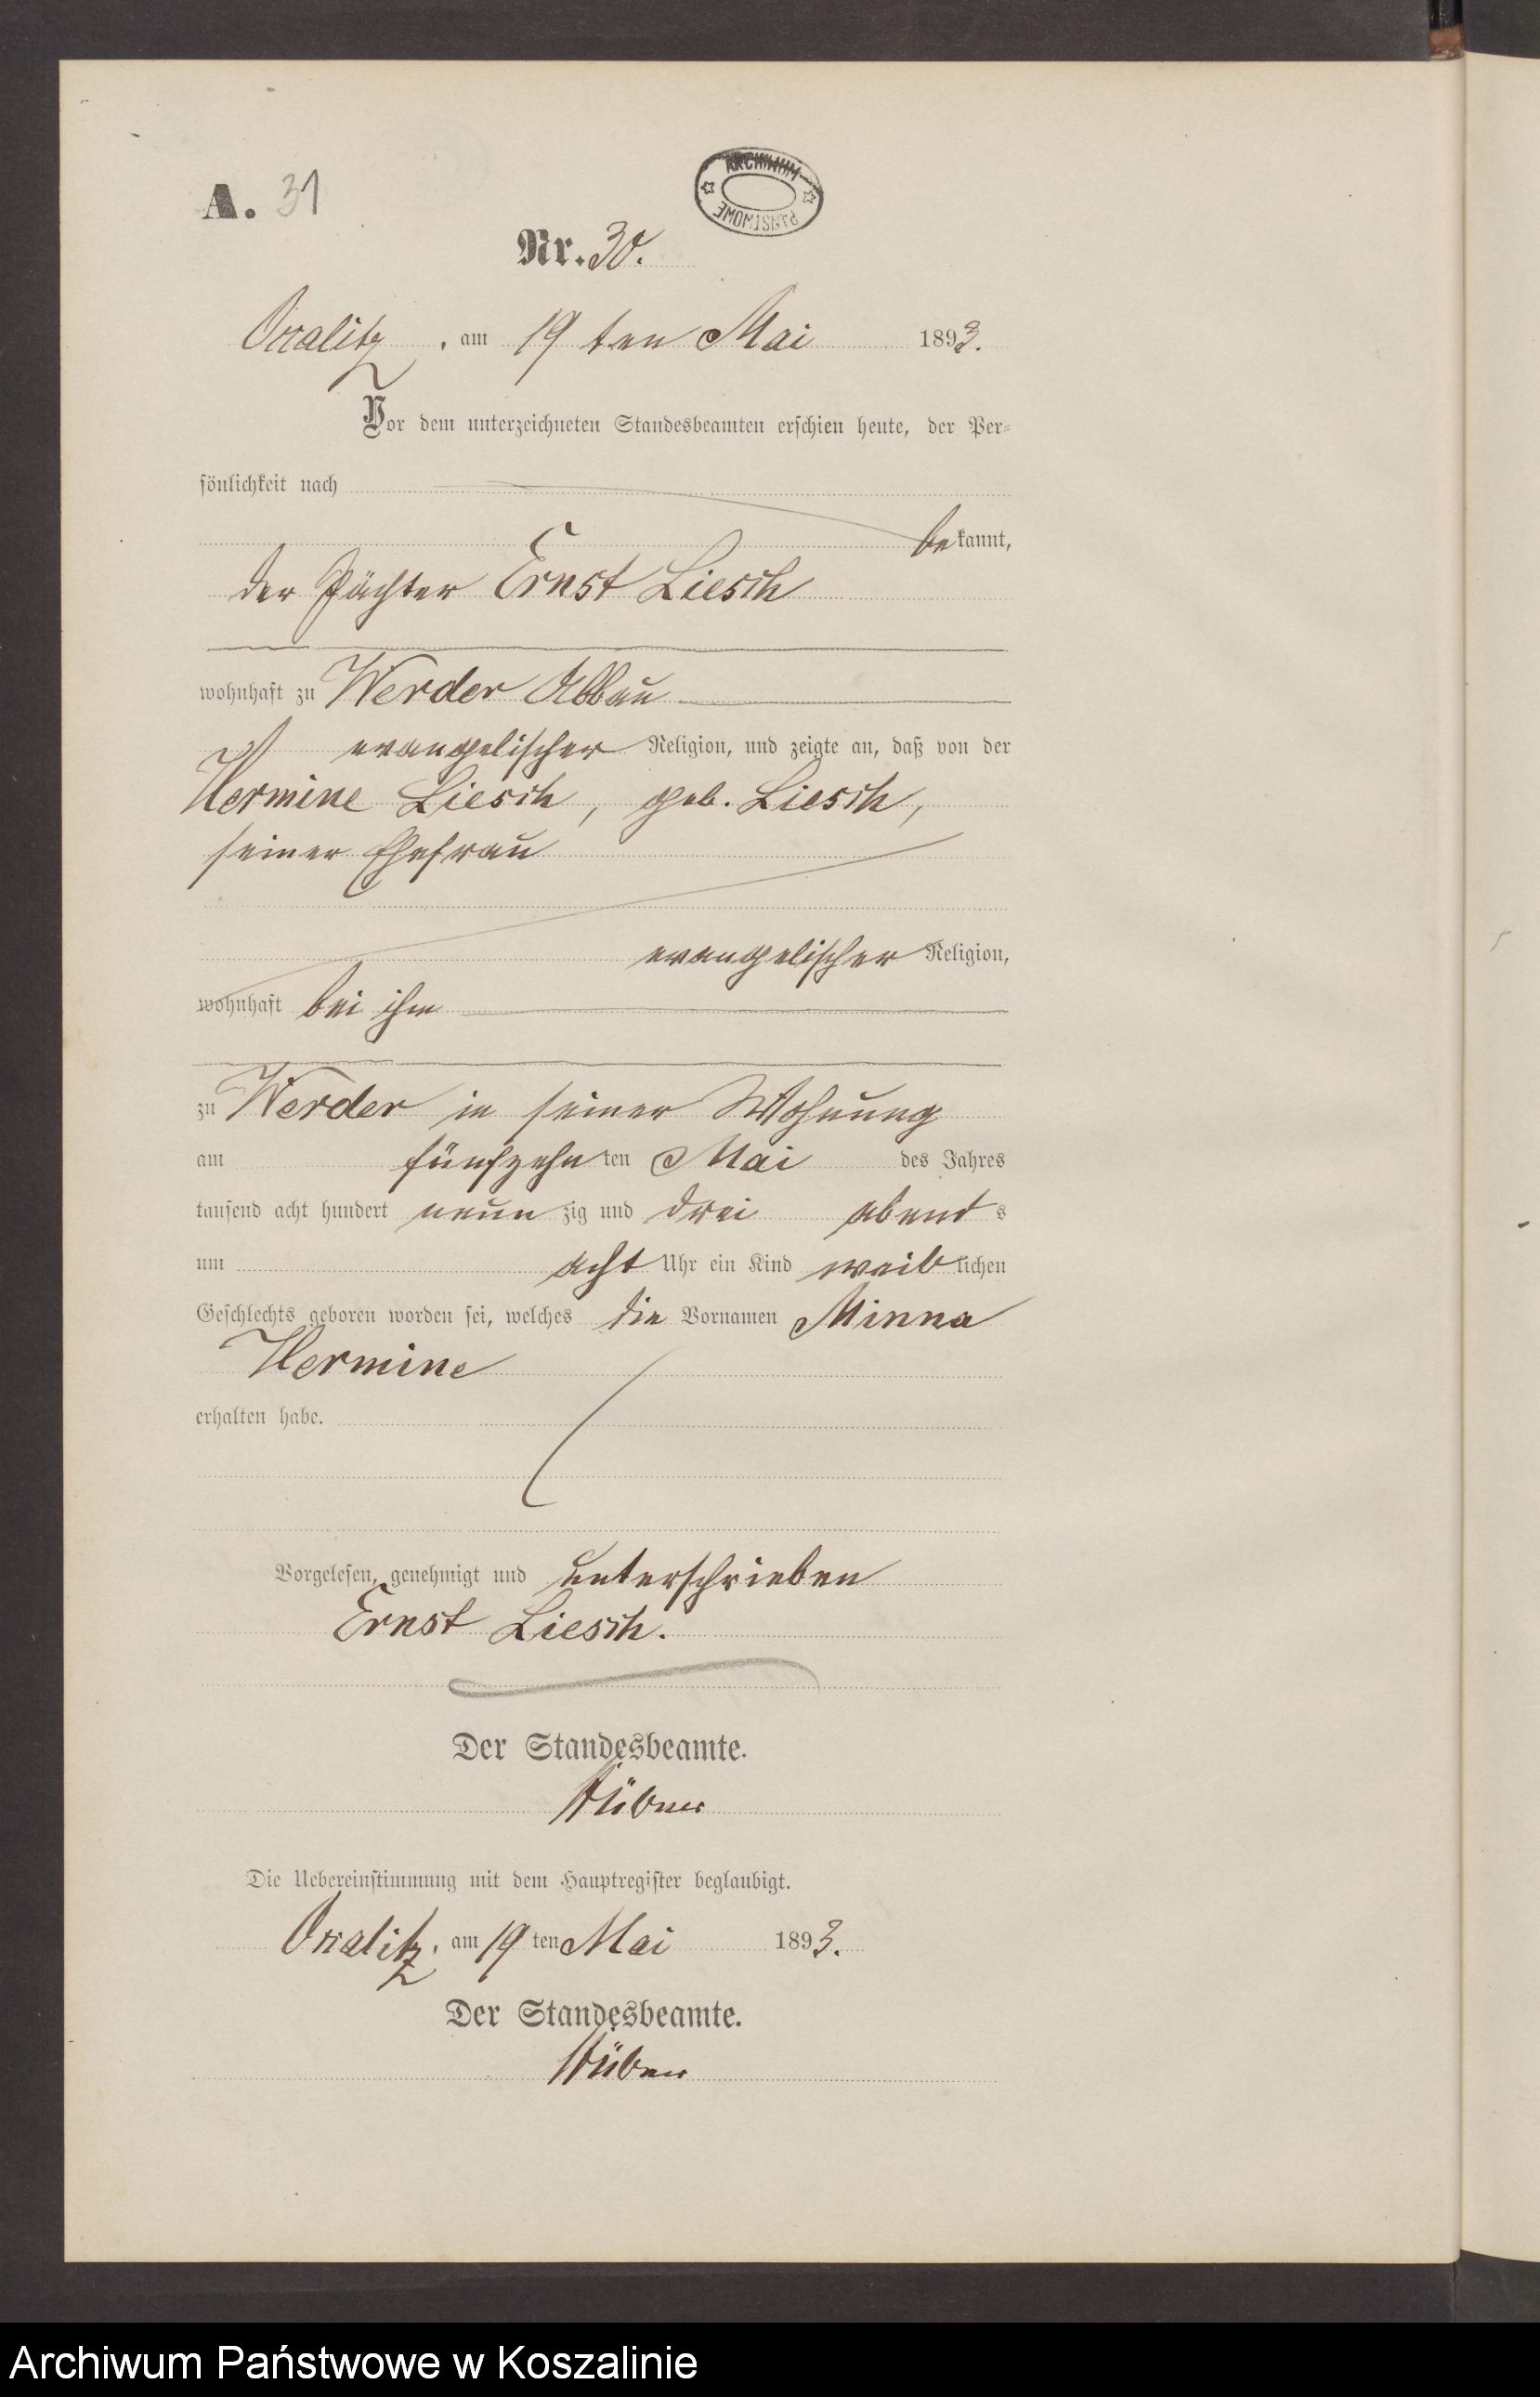 A. 31
ARCHIWUM
PAŃSTWOWE
Nr. 30.
am 19 ten Mai 1893.
Vor dem unterzeichneten Standesbeamten erschien heute, der Per-
sönlichkeit nach
bekannt,
der Pächter Ernst Liesch
wohnhaft zu Werder Abbau
evangelischer Religion, und zeigte an, daß von der
Hermine Liesch, geb. Liesch,
seiner Ehefrau
evangelischer Religion,
wohnhaft bei ihm
zu Werder in seiner Wohnung
am fünfzehnten Mai des Jahres
tausend acht hundert neunzig und drei abends
um acht Uhr ein Kind weiblichen
Geschlechts geboren worden sei, welches die Vornamen Minna
Hermine
erhalten habe.
Vorgelesen, genehmigt und unterschrieben
Ernst Liesch.
Der Standesbeamte.
Die Uebereinstimmung mit dem Hauptregister beglaubigt.
am 19 ten Mai 1893.
Der Standesbeamte.
Archiwum Państwowe w Koszalinie